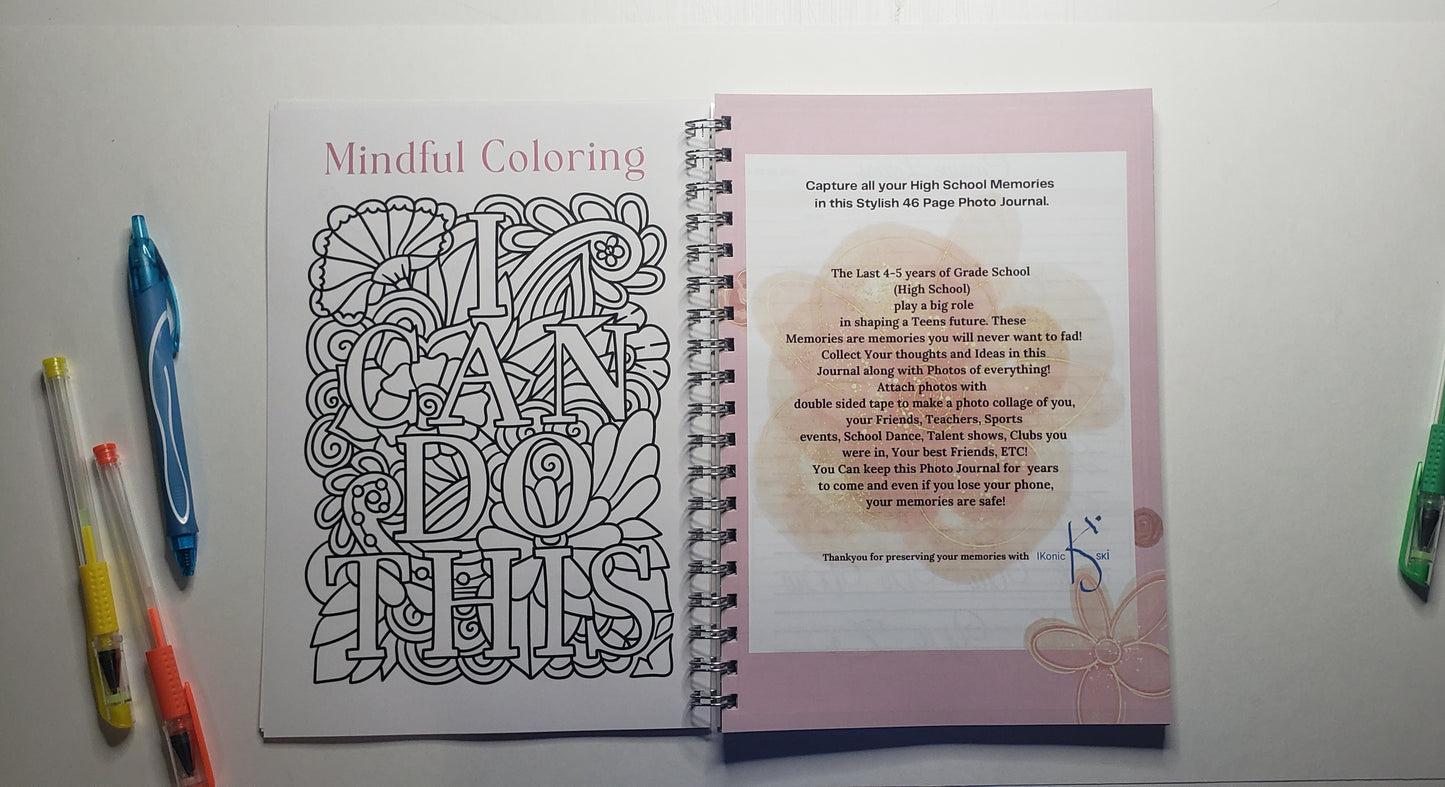 Mindful Coloring
I
CAN
DO
THIS
Capture all your High School Memories
in this Stylish 46 Page Photo Journal.
The Last 4-5 years of Grade School
(High School)
play a big role
in shaping a Teens future. These
Memories are memories you will never want to fad!
Collect Your thoughts and Ideas in this
Journal along with Photos of everything!
Attach photos with
double sided tape to make a photo collage of you,
your Friends, Teachers, Sports
events, School Dance, Talent shows, Clubs you
were in, Your best Friends, ETC!
You Can keep this Photo Journal for years
to come and even if you lose your phone,
your memories are safe!
Thankyou for preserving your memories with IKonic Ski